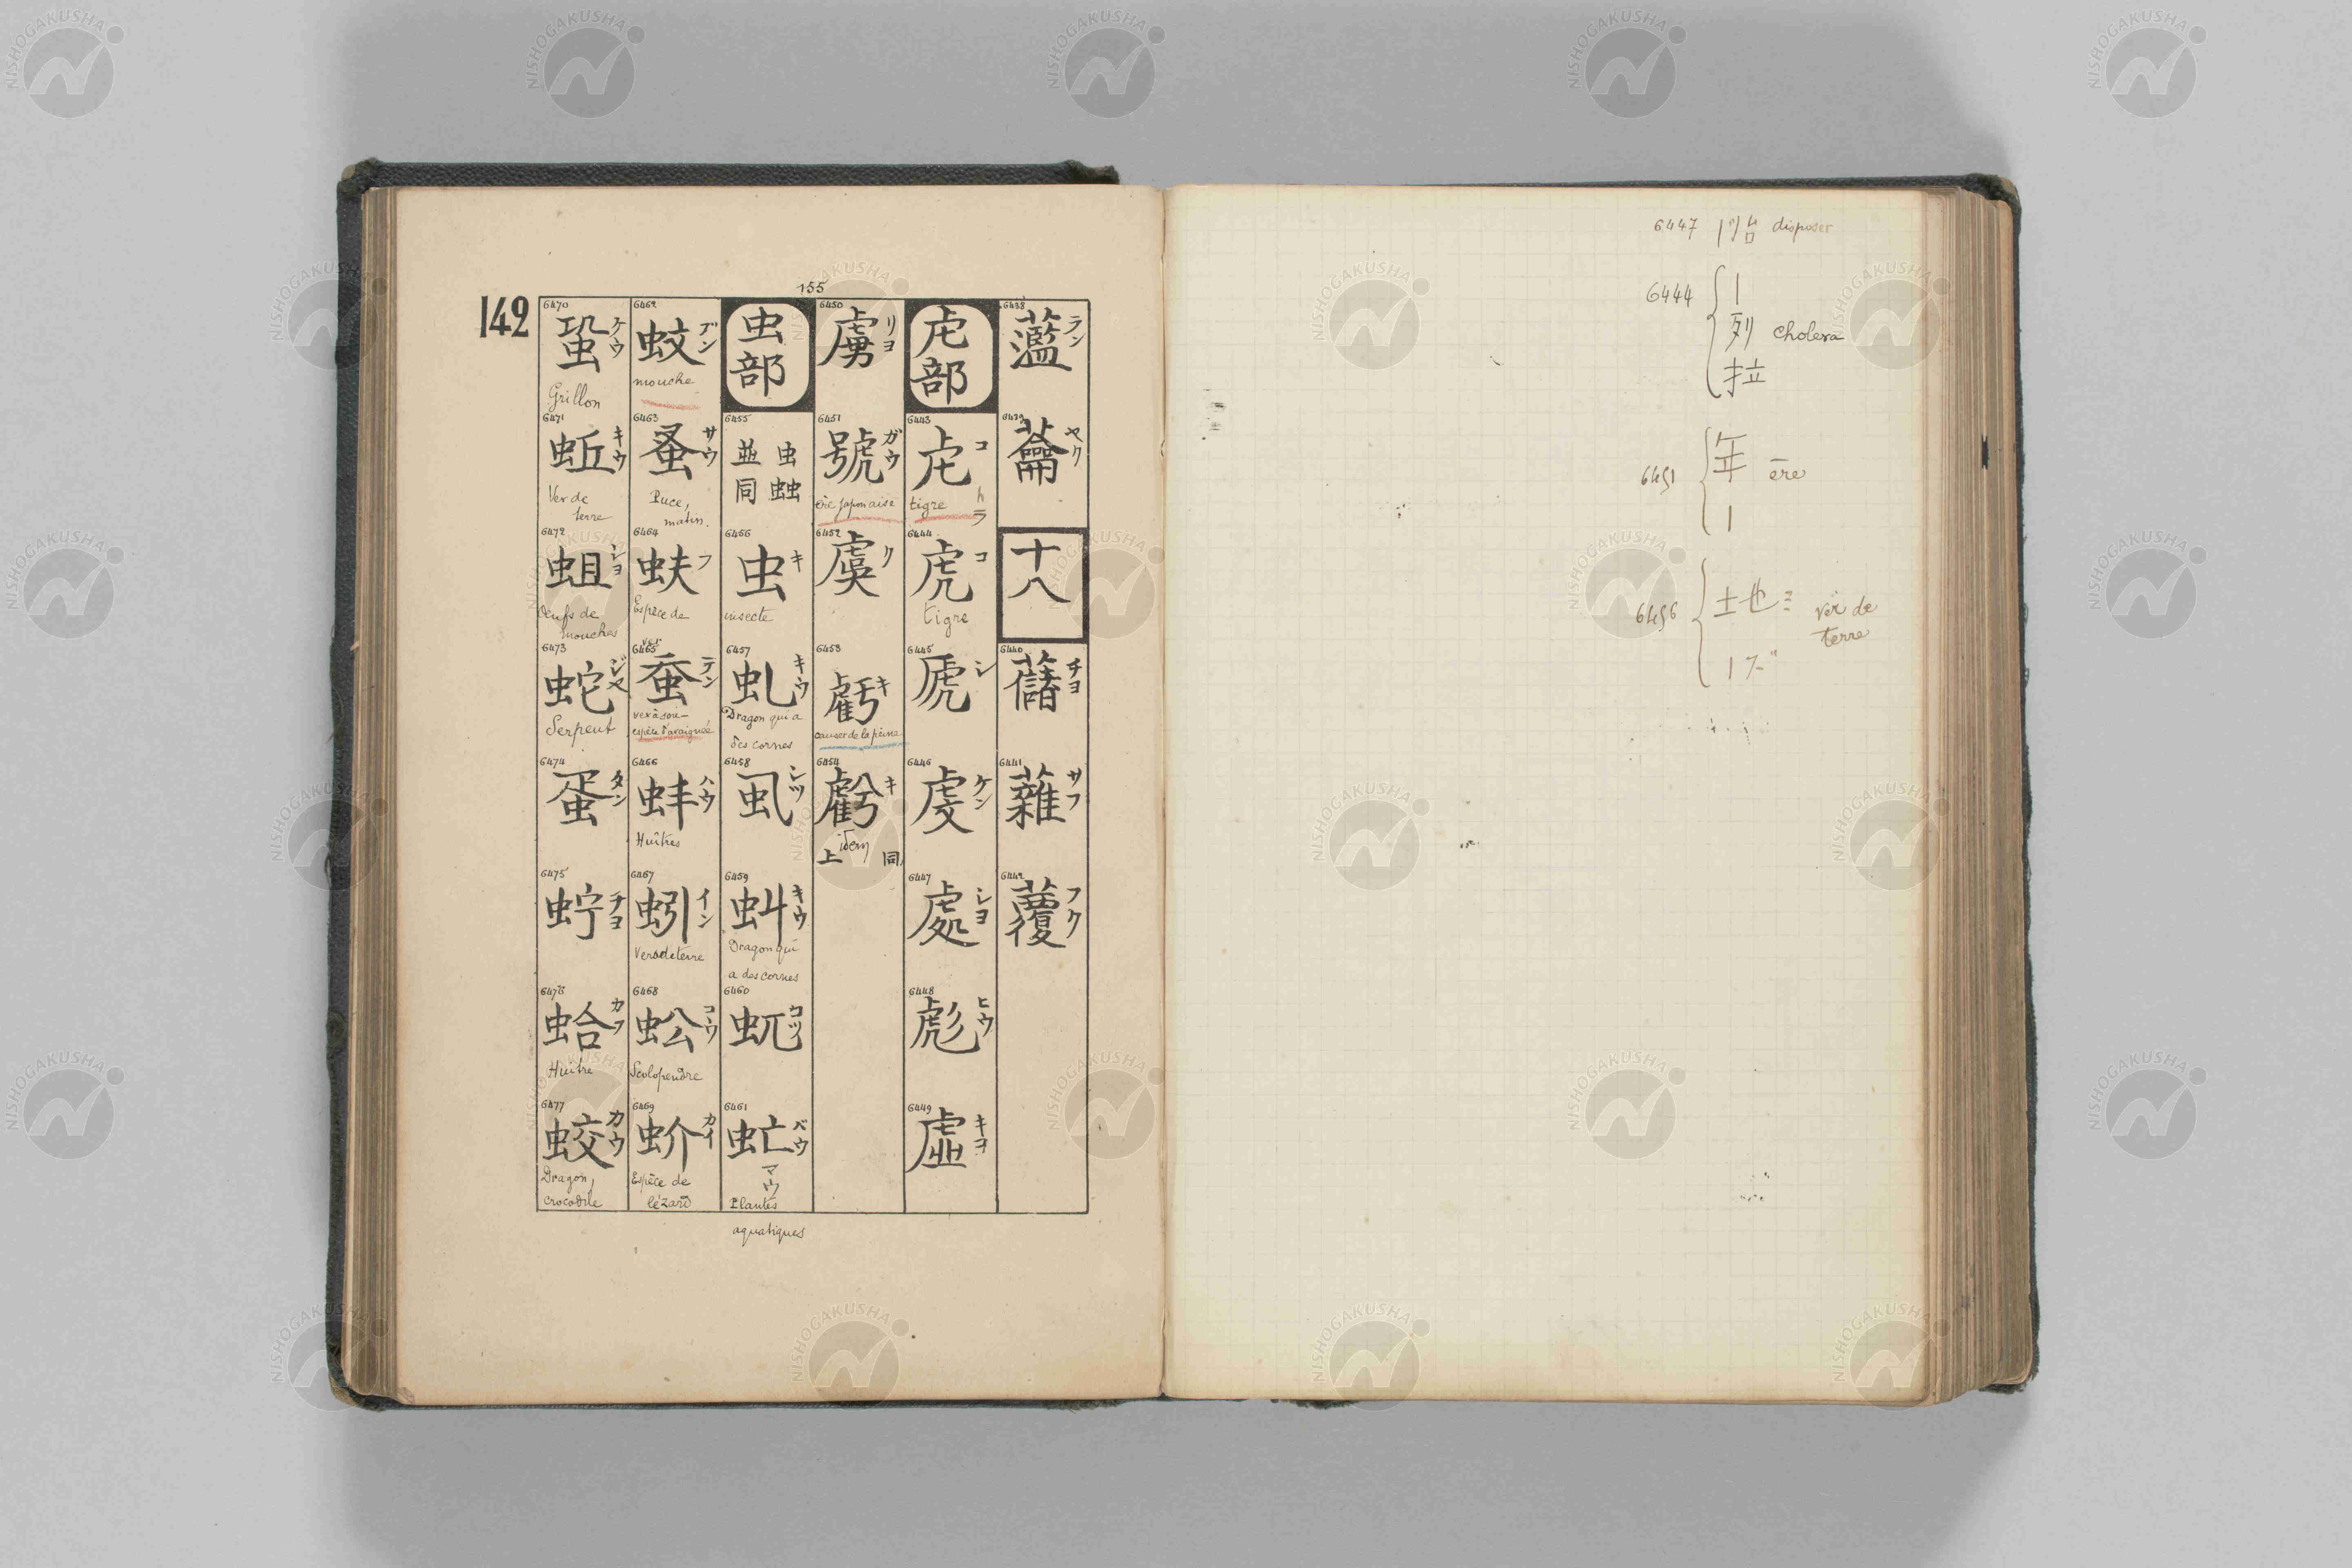 155
142
6438
濫
ラン
6439
蘥
ヤク
十八
6440
藸
チヨ
6441
雜
サフ
6442
覆
フク
虍部
6443
虍
コ
トラ
tigre
6444
虎
コ
tigre
6445
虒
シ
6446
虔
ケン
6447
處
シヨ
6448
彪
ヒウ
6449
虛
キヨ
6450
虜
リヨ
6451
號
ガウ
ère japonaise
6452
虞
グ
6453
虧
キ
causer de la peine
6454
キ
idem
同上
虫部
6455
虫䖵
並同
6456
虫
キ
insecte
6457
虬
キウ
Dragon qui a
des cornes
6458
虱
シツ
6459
虯
キウ
Dragon qui
a des cornes
6460
虺
6461
虻
バウ
マウ
Plantes
aquatiques
6462
蚊
ブン
mouche
6463
蚤
サウ
Puce,
matin.
6464
蚨
フ
Espèce de
ver
6465
蚕
テン
ver à soie
espèce d'araignée
6466
蚌
ハウ
Huîtres
6467
蚓
イン
Ver de terre
6468
蚣
コウ
Scolopendre
6469
蚧
カイ
Espèce de
lézard
6470
蛩
ケウ
Grillon
6471
蚯
キウ
Ver de
terre
6472
蛆
シヨ
Oeufs de
mouches
6473
蛇
ジヤ
Serpent
6474
蛋
タン
6475
チヨ
6476
蛤
カフ
Huître
6477
蛟
カウ
Dragon,
crocodile
6447 disposer
6444
丨
列 cholera
拉
6451
年 ère
丨
6456
土地 ver de
terre
NISHOGAKUSHA